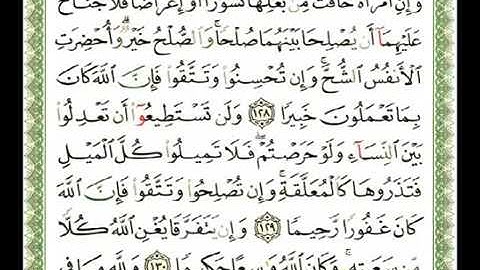 وَإِنِ ٱمْرَأَةٌ خَافَتْ مِنۢ بَعْلِهَا نُشُوزًا أَوْ إِعْرَاضًا فَلَا جُنَاحَ
عَلَيْهِمَآ أَن يُصْلِحَا بَيْنَهُمَا صُلْحًا ۚ وَٱلصُّلْحُ خَيْرٌ ۗ وَأُحْضِرَتِ
ٱلْأَنفُسُ ٱلشُّحَّ ۚ وَإِن تُحْسِنُوا۟ وَتَتَّقُوا۟ فَإِنَّ ٱللَّهَ كَانَ
بِمَا تَعْمَلُونَ خَبِيرًا ١٢٨ وَلَن تَسْتَطِيعُوٓا۟ أَن تَعْدِلُوا۟
بَيْنَ ٱلنِّسَآءِ وَلَوْ حَرَصْتُمْ ۖ فَلَا تَمِيلُوا۟ كُلَّ ٱلْمَيْلِ
فَتَذَرُوهَا كَٱلْمُعَلَّقَةِ ۚ وَإِن تُصْلِحُوا۟ وَتَتَّقُوا۟ فَإِنَّ ٱللَّهَ
كَانَ غَفُورًا رَّحِيمًا ١٢٩ وَإِن يَتَفَرَّقَا يُغْنِ ٱللَّهُ كُلًّا
مِّن سَعَتِهِۦ ۚ وَكَانَ ٱللَّهُ وَٰسِعًا حَكِيمًا ١٣٠ وَلِلَّهِ مَا فِى